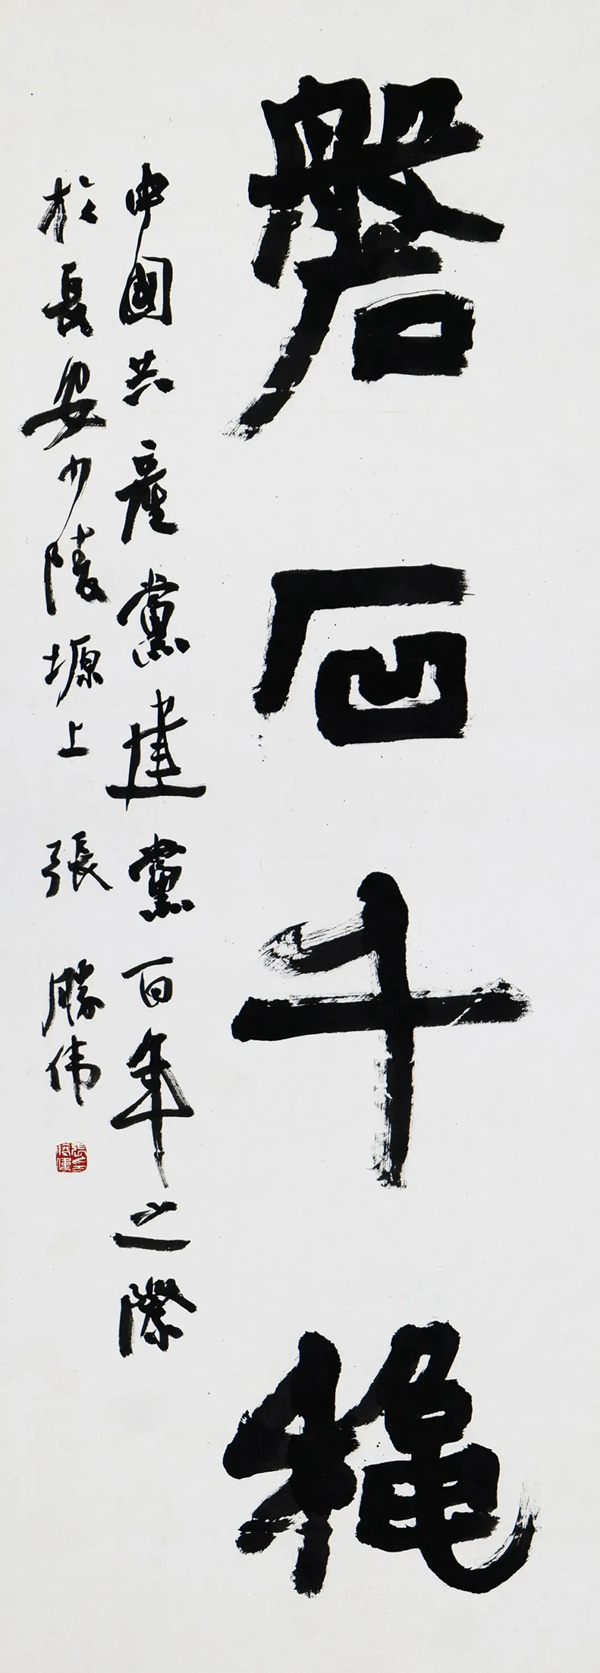 磐石千穐
中國共產黨建黨百年之際
於長安少陵塬上 張勝伟